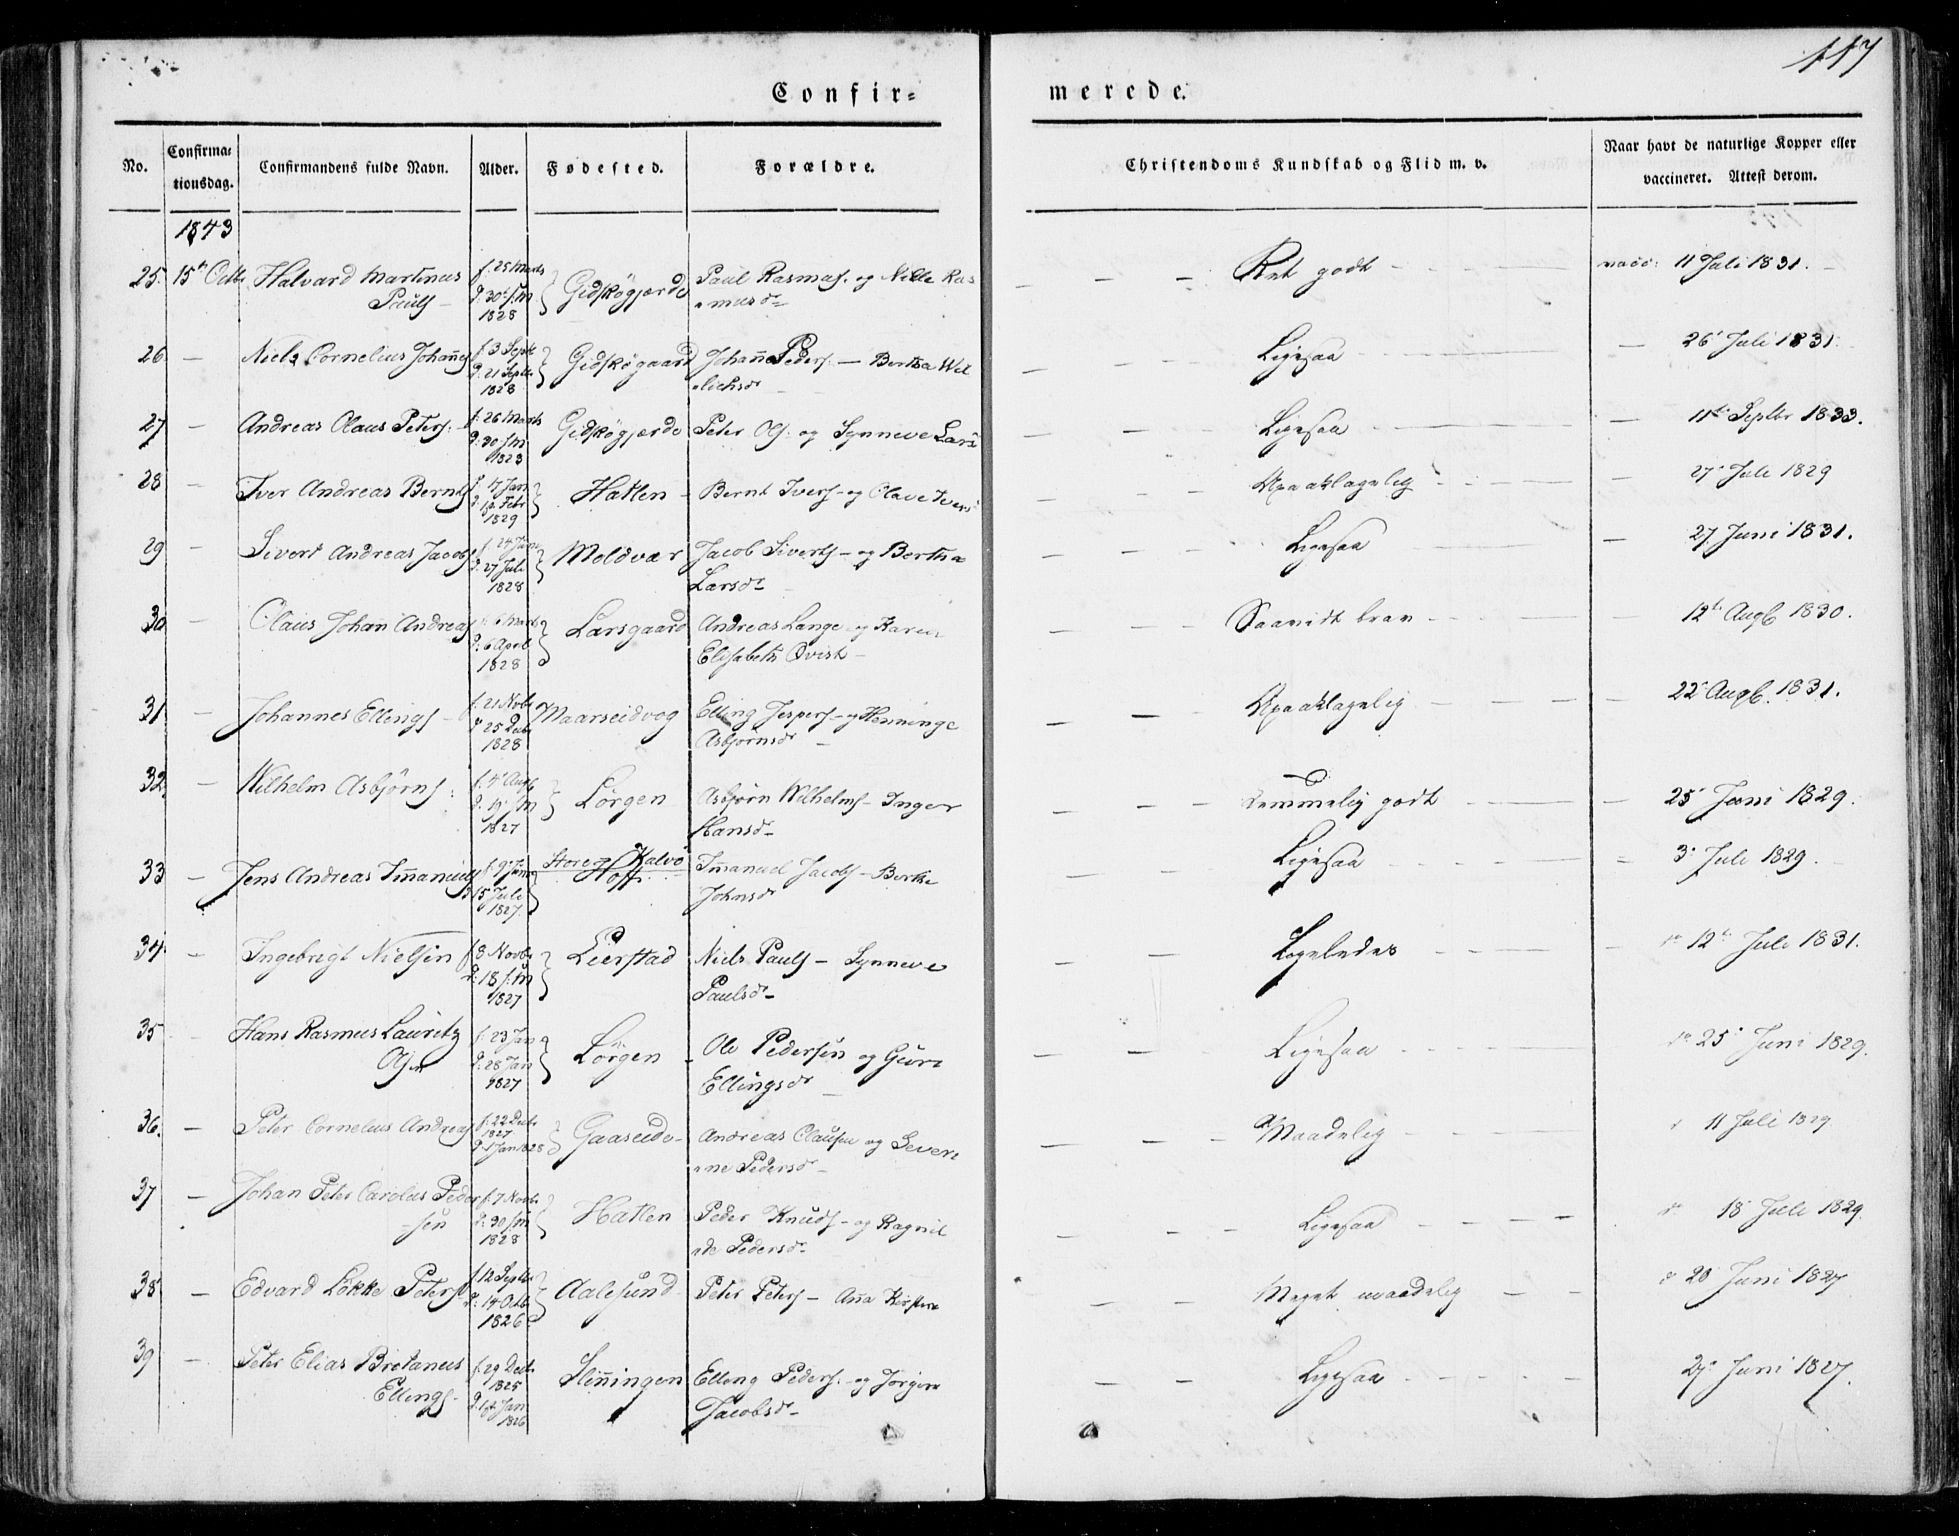 117
Confir=
merede.
No.
Confirma=
tionsdag.
Confirmandens fulde Navn.
Alder.
Fødested.
Forældre.
Christendoms Kundskab og Flid m. v.
Naar havt de naturlige Kopper eller
vaccineret. Attest derom.
1843
25. 15de Octbr Halvard Martinus Pauls – f: 25 Marts d: 30 s: M 1828 Gidskøgjærde Paul Rasmus. og Nille Ras= =musd – – – – Ret godt – – – vacc: 11 Juli 1831.
26 – Niels Cornelius Johañes f: 3 Sept d: 21 Septbr 1828 Gidskøgaard Johañes Peders. – Bertha – – – Ligesaa – – – – 26 Juli 1831.
27 – Andreas Olaus Peters. – f: 26 Marts d: 30 s: M 1828 Gidskøgjærde Peter Ols: og Synneve Lars – – – Ligesaa – – – – 11te Septbr 1833.
28 – Iver Andreas Bernts f: 17 Jan d: Febr 1829 Hatlen – Bernt Ivers – og Olave Ivers – – – Upaaklagelig – – – 27 Juli 1829
29 – Sivert Andreas Jacobs f: 24 Juni d: 27 Juli 1828 Moldvær Jacob Siverts – og Bertha Larsd – – – – Ligesaa – – – – 27 Juni 1831.
30 – Olaus Johan Andreas f: 6 Marts d: 6 April 1828 Larsgaard Andreas Lange og Karen Elisabeth Qvist – – – – Saavidt brav – – – 12te Augt 1830.
31. – Johannes Ellings – f: 21 Novbr d 25 Decbr 1828 Maarseidvog Elling Jespers – og Henninge Asbjørnsd – – – – Upaaklagelig – – – 22 Augt. 1831.
32. – Wilhelm Asbjørns: f: 4 Augt d: 19 s: M 1827 Lørgen Asbjørn Wilhelms – Inger Hansd – – – – Temmelig godt – – – 25 Juni 1829.
33 – Jens Andreas Imanuels f: 9 Juni d 15 Juli 1827. Store Kalvø Hoff Imanuel Jacobs – Berthe Johnsd – – – Ligesaa – – – – 3 Juli 1829.
34. – Ingebrigt Nielsen f 8 Novbr d: 18 s: M 1827 Leerstad Niels Pauls – Synneve Paulsd – – – – Ligeledes – – – – 12te Juli 1831.
35 – Hans Rasmus Lauritz Olsen f: 23 Jan d: 28 Jan 1827 Lørgen – Ole Pedersen og Guri Ellingsd – – – – Ligesaa – – – 25 Juni 1829.
36. – Peter Cornelius Andreas f: 22 Decbr 1827 d 1 Jan 1828 Gaaseide – Andreas Olausen og Seve= =rine Pedersd – – – – Maadelig – – – 11 Juli 1829
37 – Johan Peter Carolus Peder =sen f: 7 Novbr d: 30 s: M 1828 Hatlen Peder Knuds – og Ragnil =de Pedersd – – – – Ligesaa – – – 18 Juli 1829
38 – Edvard Løkke Peters f 12 Septbr d: 14 Octb 1826 Aalesund Peter Peters – Aña Kirstine – – – Meget maadelig – – 20 Juni 1827
39 – Peter Elias Bretanus Ellings – f: 29 Decbr 1825 d: Jan 1826 Sliñingen Elling Peders. – og Jørgine Jacobsd – – – – Ligesaa – – – 27 Juni 1827.